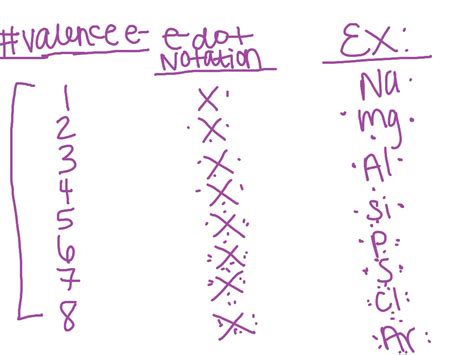 #valence e- e- dot Notation EX:
1 X· Na·
2 ·X· ·mg·
3 ·Ẋ· ·Al·
4 ·X· ·Si·
5 ·X: ·P:
6 :X: ·S:
7 :X: :Cl:
8 :X: :Ar: